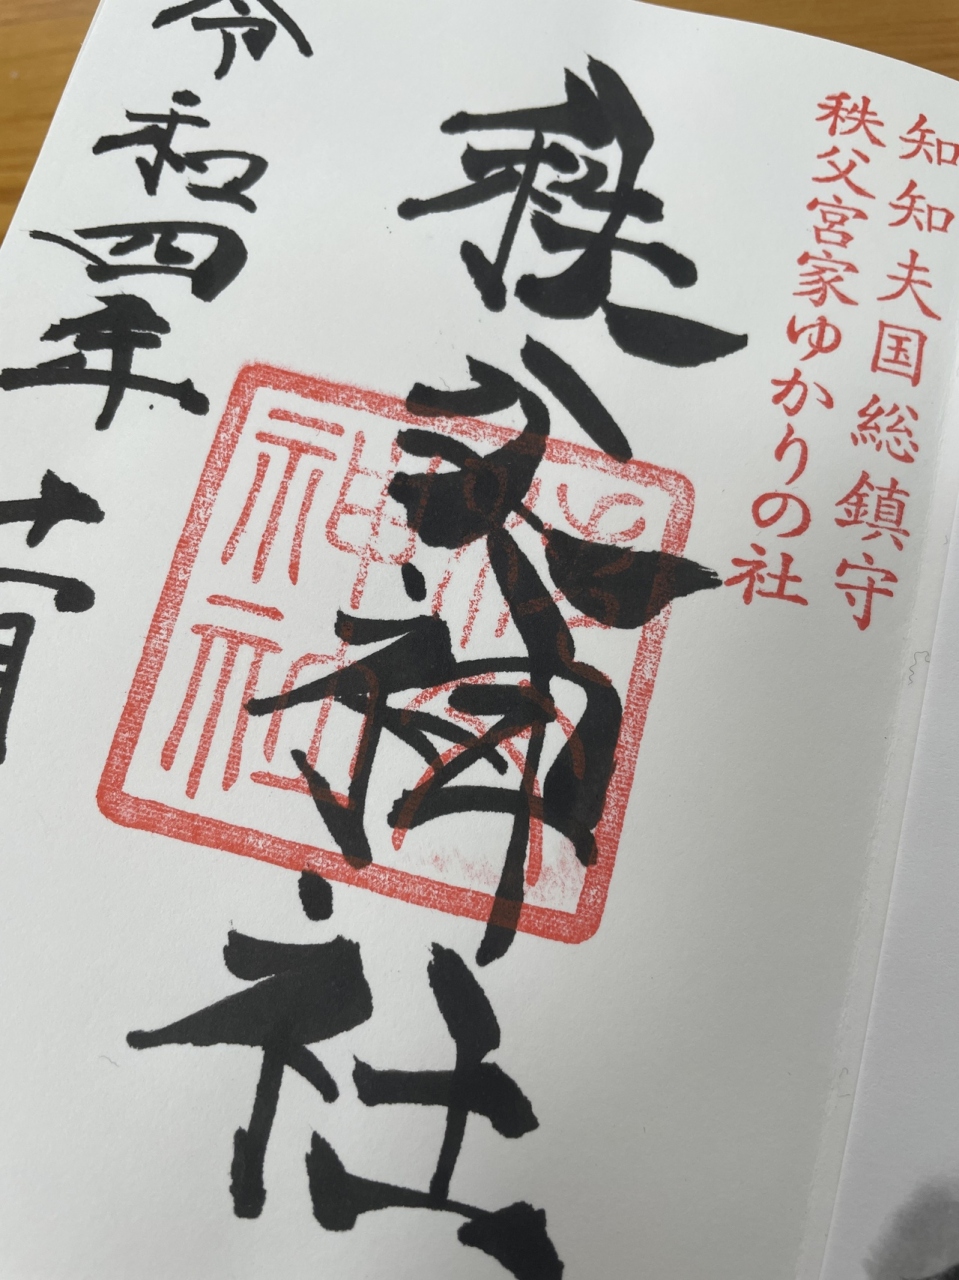 知知夫国総鎮守
秩父宮家ゆかりの社
秩父神社
秩父神社
令和四年十一月